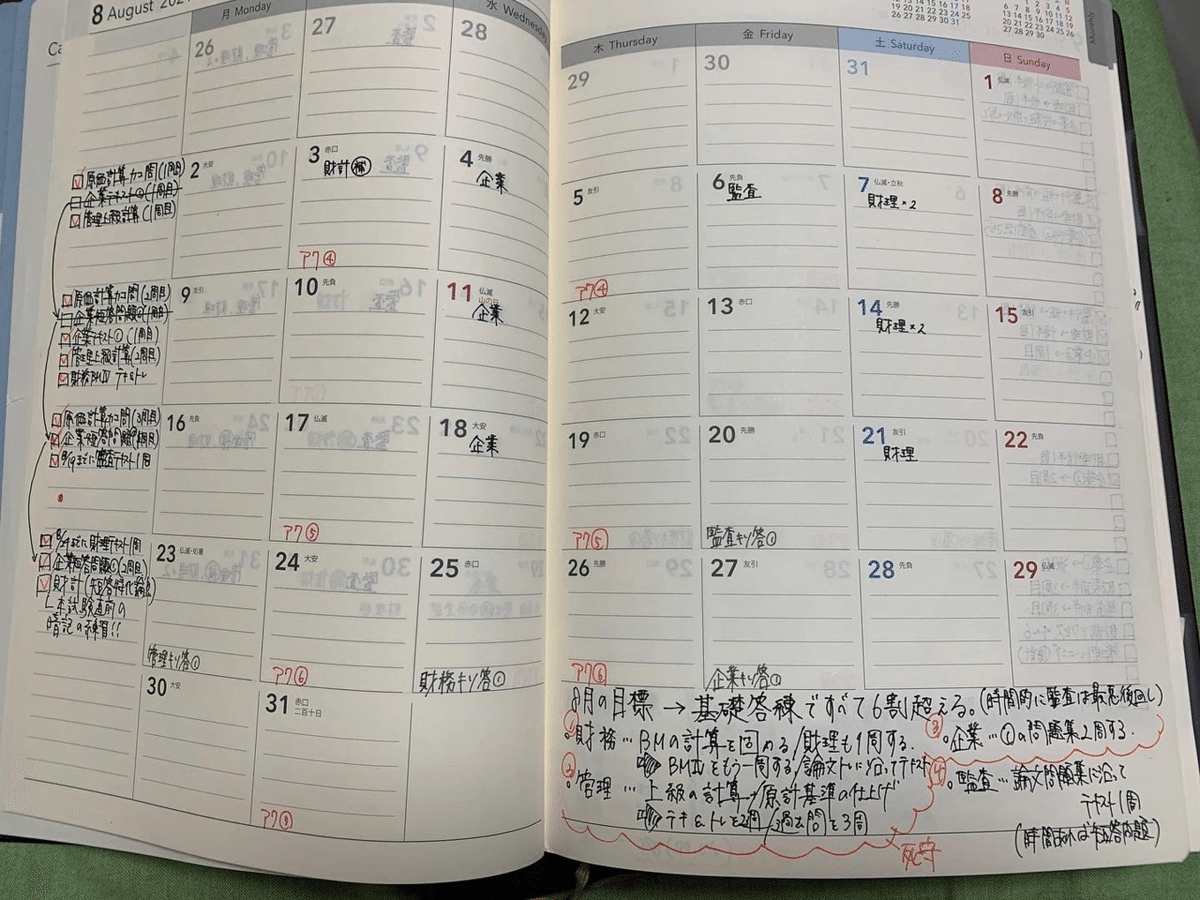 8 August 202
月 Monday
水 Wednesday
木 Thursday
金 Friday
土 Saturday
日 Sunday
Monthly
26
27
28
29
30
31
1 仏滅
☑ 原価計算カコ問(1周目)
企業テキスト① (1周目)
☑ 管理上級計算 (1周目)
2 大安
3 赤口
財計
4 先勝
企業
5 友引
6 先負
監査
7 仏滅・立秋
財理×2
8 先勝
アク④
アク④
☑ 原価計算カコ問(2周目)
企業短答問題①(1周目)
☑ 企業テキスト① (1周目)
☑ 管理上級計算(2周目)
☑ 財務BMⅣ テキ&トレ
9 友引
10 先負
11 仏滅
山の日
企業
12 大安
13 赤口
14 先勝
財理×2
15 友引
☑ 原価計算カコ問(3周目)
☑ 企業短答問題
☑ 8/19までに監査テキスト1周
16 先負
17 仏滅
18 大安
企業
19 赤口
20 先勝
21 友引
財理
22 先負
アク⑤
アク⑤
監査キソ答①
☑ 8/24までに財理テキスト1周
☑ 企業短答問題①(2周目)
☑ 財計(短答特化論点)
└ 本試験直前の
暗記の練習!!
23 仏滅・処暑
24 大安
25 赤口
26 先勝
27 友引
28 先負
29 仏滅
管理キソ答①
アク⑥
財務キソ答①
アク⑥
企業キソ答①
30 大安
31 赤口
二百十日
8月の目標 → 基礎答練ですべて6割超える。(時間的に監査は最悪後回し)
① 。財務… BMの計算を固める/財理も1周する.
BMⅣをもう一周する/論文トレに沿ってテキスト
② 。管理 … 上級の計算→原計基準の仕上げ
テキ&トレを2周/過去問を3周
③ 。企業…①の問題集2周する.
④ 。監査…論文問題集に沿って
テキスト1周
(時間あれば短答問題)
死守